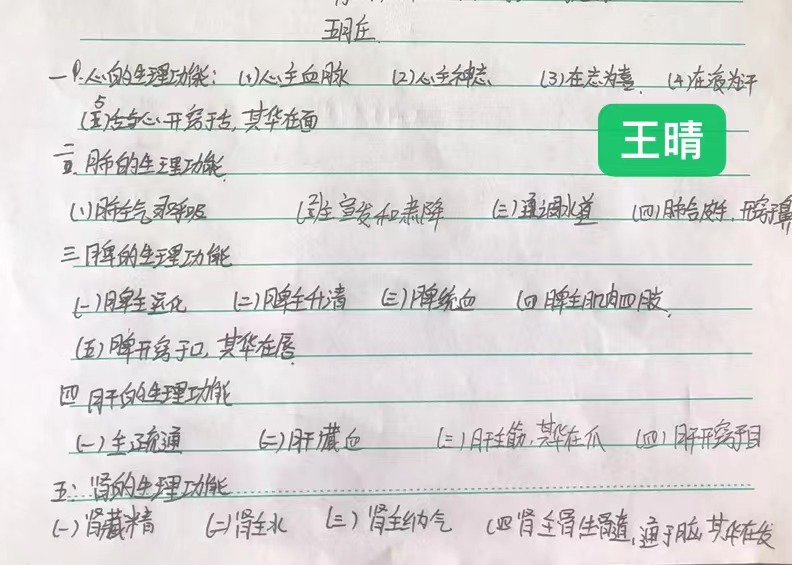 五月在
一、心的生理功能：(1)心主血脉 (2)心主神志 (3)在志为喜 (4)在液为汗
(5)舌与心开窍于舌，其华在面
王晴
二 肺的生理功能
(1)肺主气司呼吸 (2)主宣发和肃降 (三)通调水道 (四)肺合皮毛，开窍于鼻
三 脾的生理功能
(一)脾主运化 (二)脾主升清 (三)脾统血 (四)脾主肌肉四肢
(五)脾开窍于口，其华在唇
四 肝的生理功能
(一)主疏泄 (二)肝藏血 (三)肝主筋，其华在爪 (四)肝开窍于目
五：肾的生理功能
(一)肾藏精 (二)肾主水 (三)肾主纳气 (四)肾主骨生骨髓，通于脑，其华在发